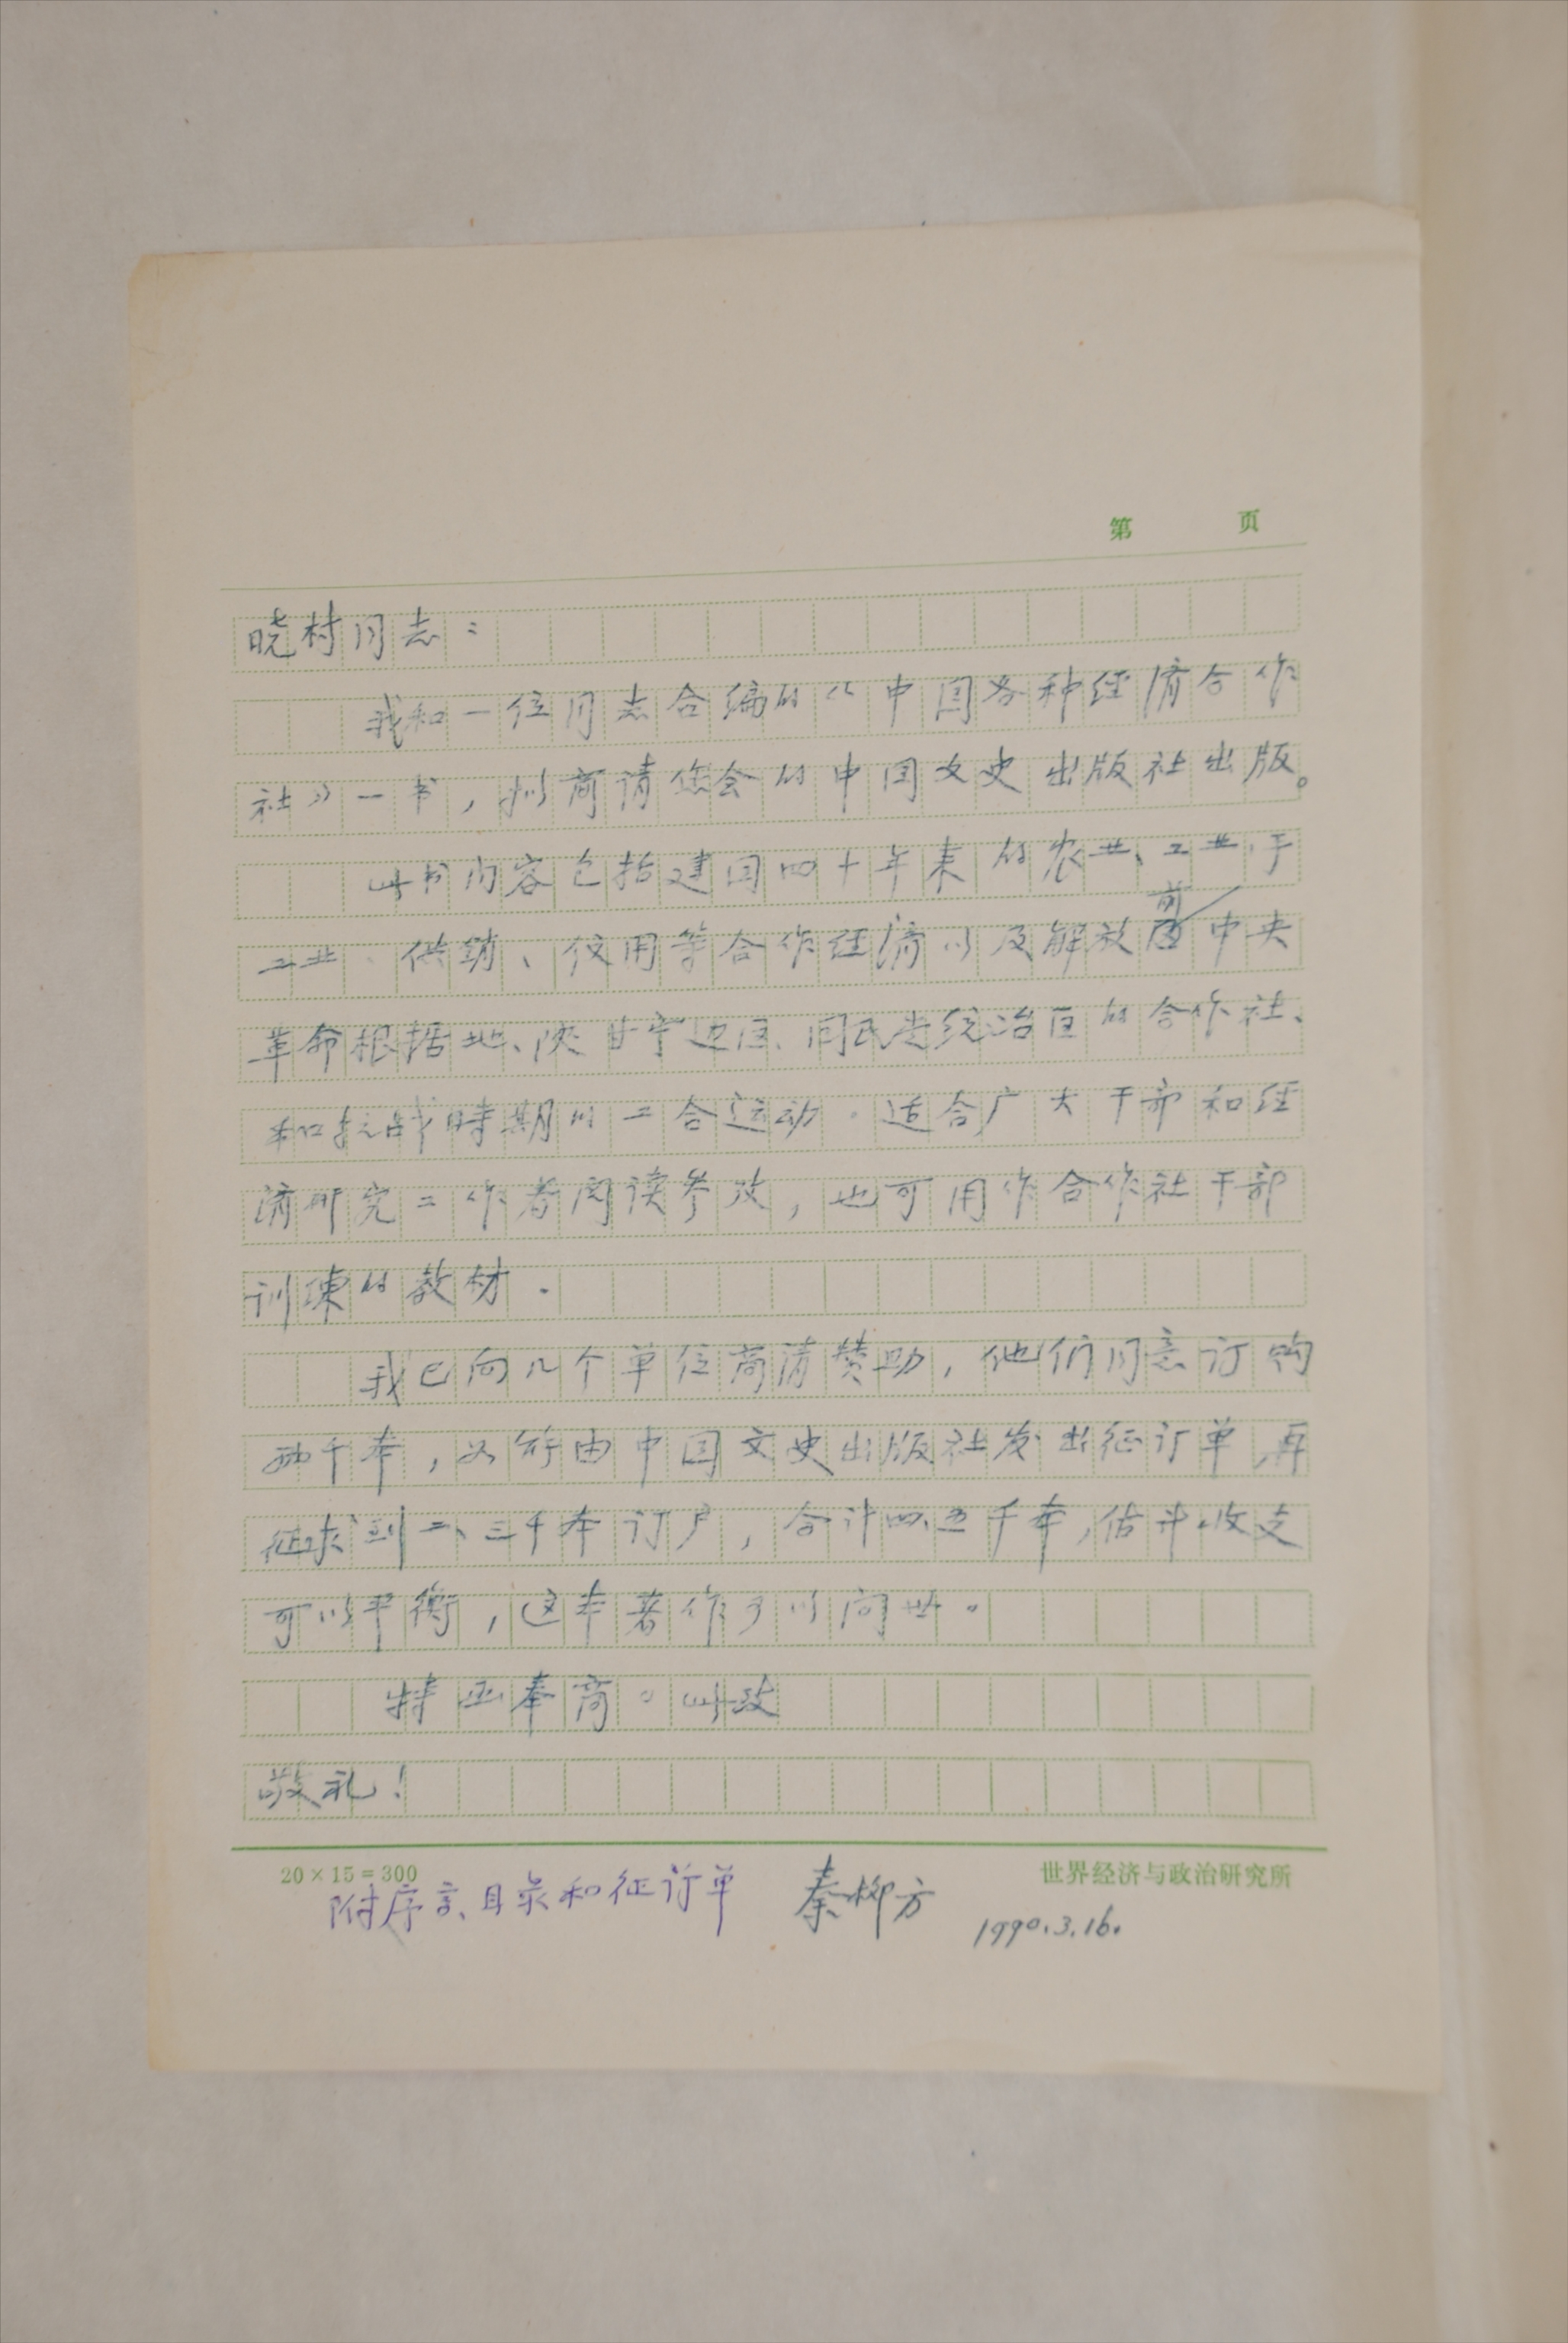 第 页
晓村同志：
我和一位同志合编的《中国各种经济合作
社》一书，拟商请您会的中国文史出版社出版。
此书内容包括建国四十年来的农业、工业、手
工业、供销、信用等合作经济以及解放前中央
革命根据地、陕甘宁边区、国民党统治区的合作社、
和抗战時期的工合运动。适合广大干部和经
济研究工作者阅读参考，也可用作合作社干部
训练的教材.
我已向几个单位商请赞助，他们同意订购
两千本，如能由中国文史出版社发出征订单，再
征求到二、三千本订户，合计四、五千本，估计收支
可以平衡，这本著作可以问世。
特函奉商。此致
敬礼！
20×15=300 世界经济与政治研究所
附序言、目录和征订单 秦柳方
1990.3.16.